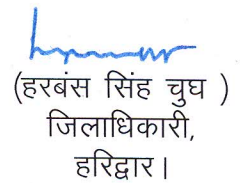 (हरबंस सिंह चुघ )
जिलाधिकारी,
हरिद्वार।